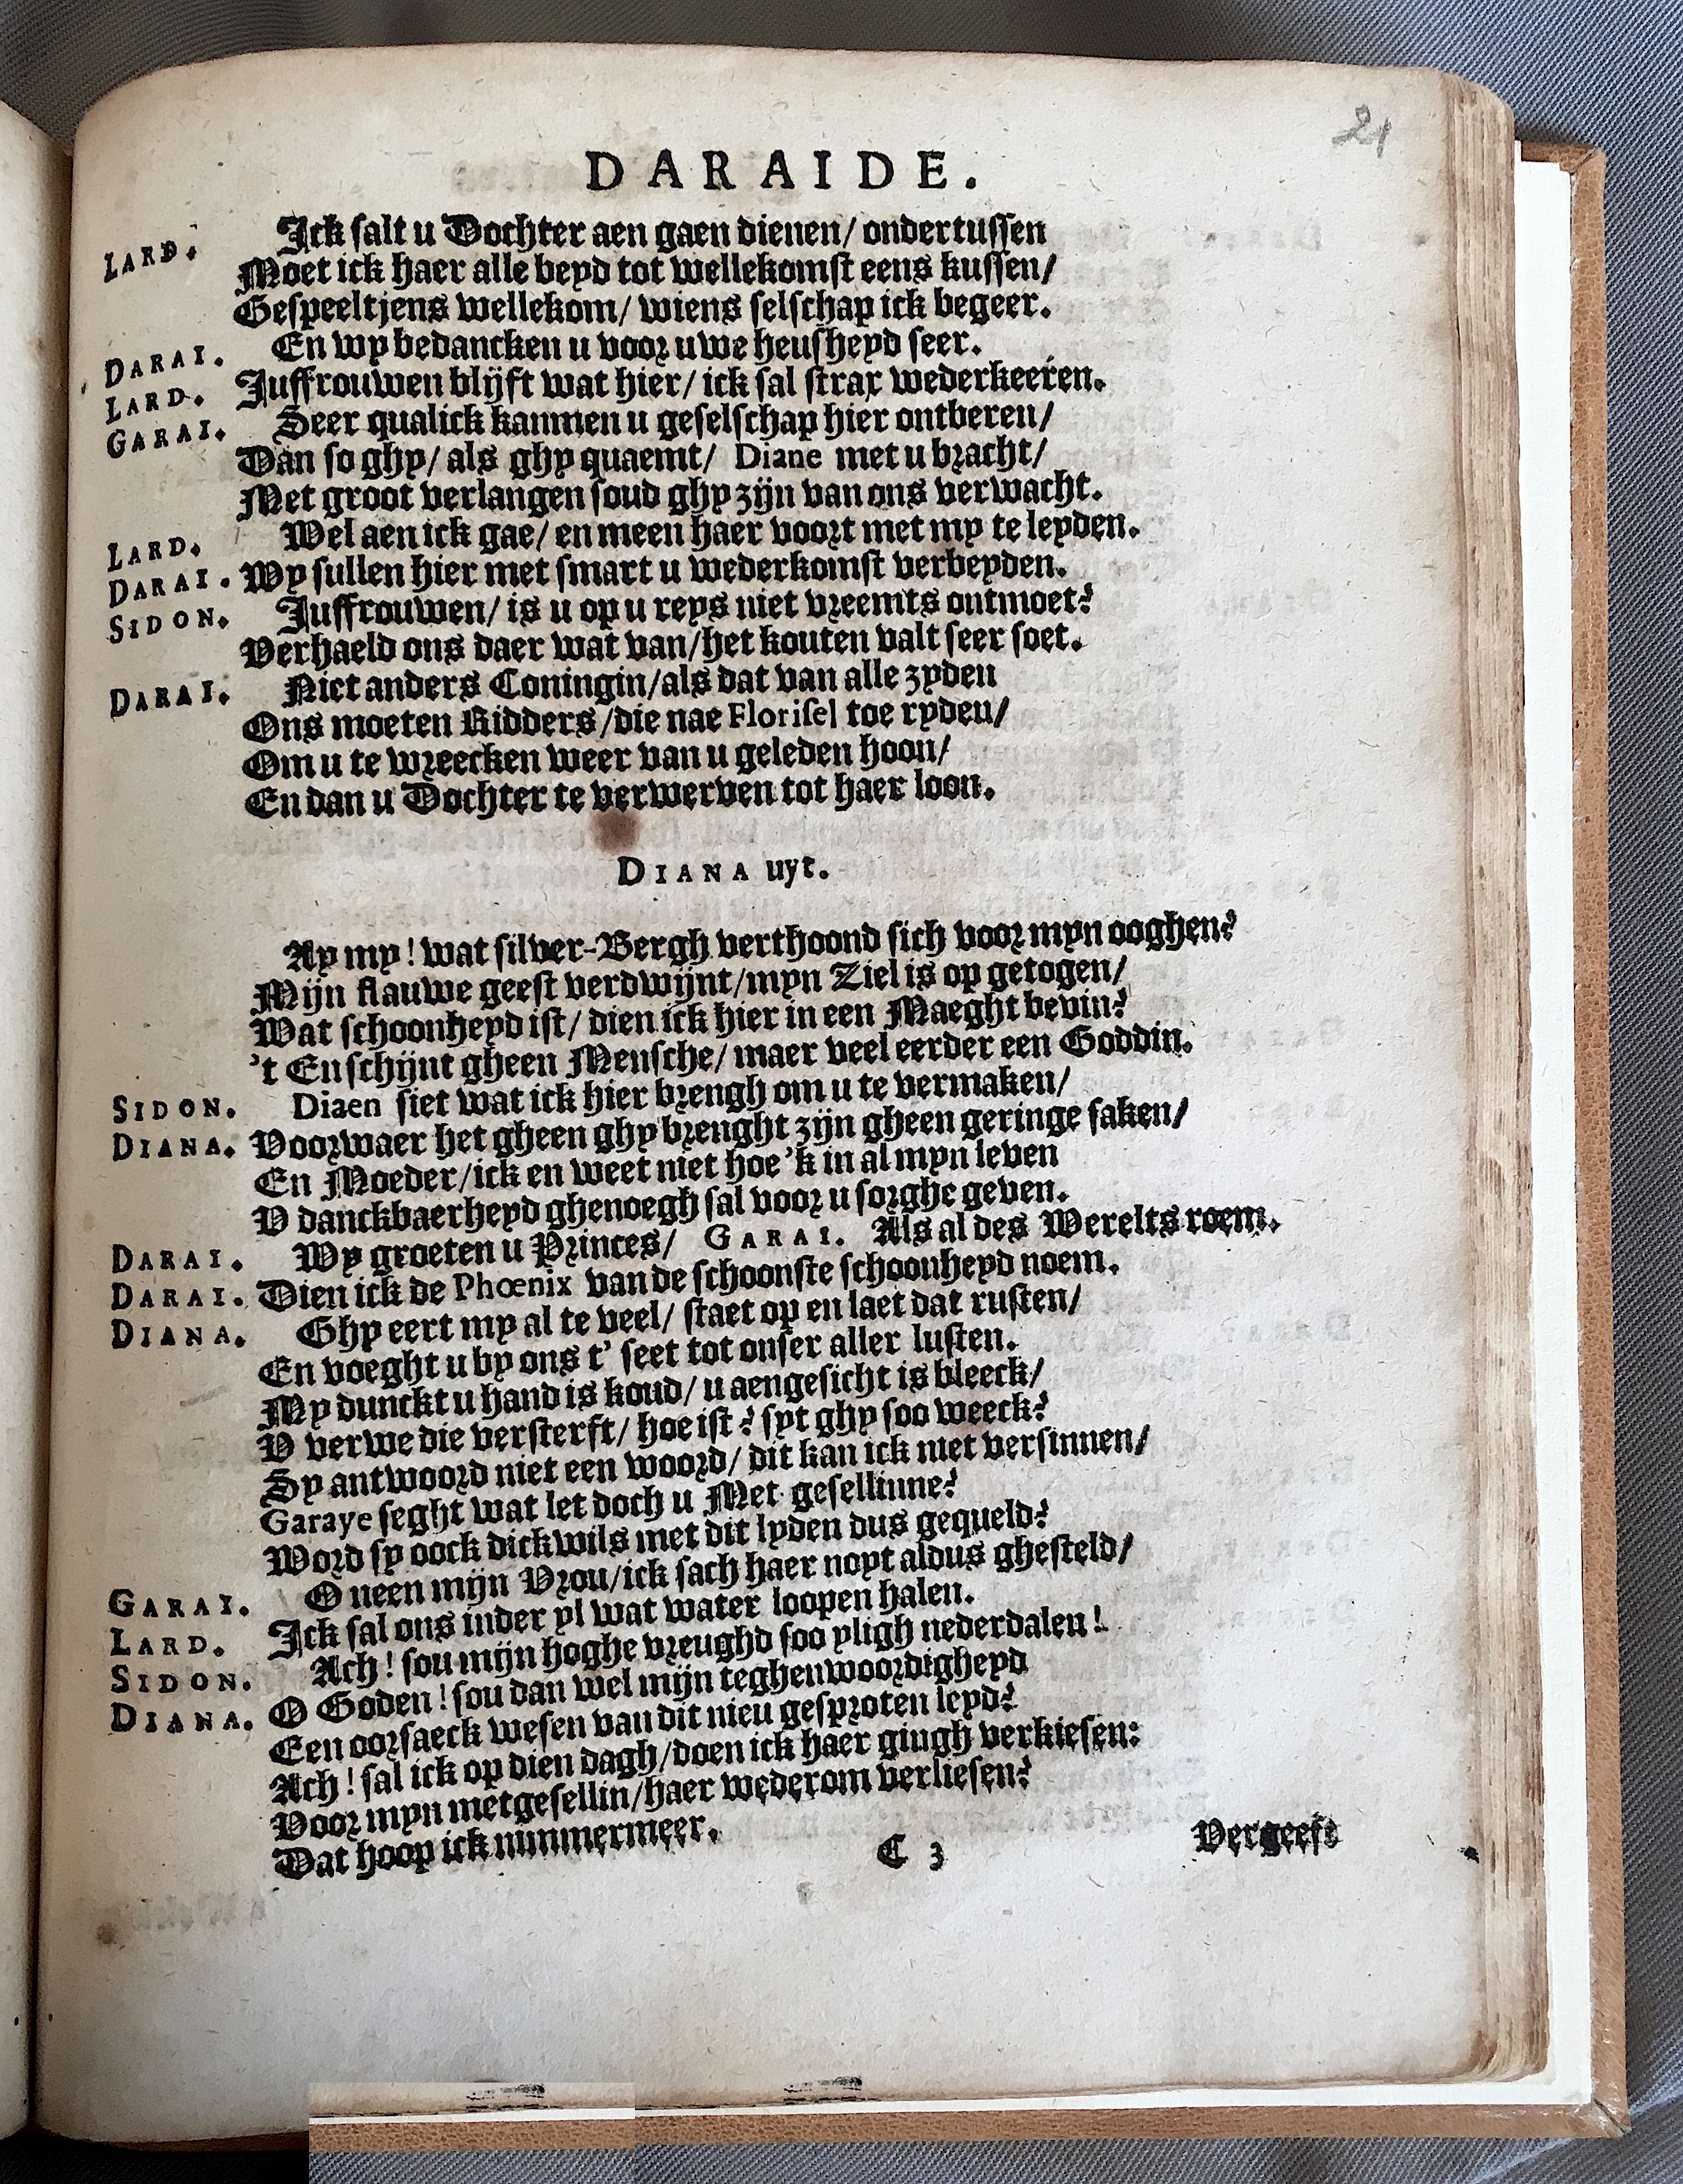 21
DARAIDE.
LARD. Ick salt u Dochter aen gaen dienen/ ondertussen
Moet ick haer alle beyd tot wellekomst eens kussen/
Gespeeltjens wellekom/ wiens selschap ick begeer.
DARAI. En wy bedancken u voor uwe heusheyd seer.
LARD. Juffrouwen blijft wat hier/ ick sal strax wederkeeren.
GARAI. Seer qualick kanmen u geselschap hier ontberen/
Dan so ghy/ als ghy quaemt/ Diane met u bracht/
Met groot verlangen soud ghy zijn van ons verwacht.
LARD. Wel aen ick gae/ en meen haer voort met my te leyden.
DARAI. Wy sullen hier met smart u wederkomst verbeyden.
SIDON. Juffrouwen/ is u op u reys niet vreemts ontmoet?
Verhaeld ons daer wat van/het kouten valt seer soet.
DARAI. Niet anders Coningin/als dat van alle zyden
Ons moeten Ridders/die nae Florisel toe ryden/
Om u te wreecken weer van u geleden hoon/
En dan u Dochter te verwerven tot haer loon.
DIANA uyt.
Ay my! wat silver-Bergh verthoond sich voor myn ooghen?
Mijn flauwe geest verdwijnt/myn Ziel is op getogen/
Wat schoonheyd ist/ dien ick hier in een Maeght bevin?
't En schijnt gheen Mensche/ maer veel eerder een Goddin.
SIDON. Diaen siet wat ick hier brengh om u te vermaken/
DIANA. Voorwaer het gheen ghy brenght zijn gheen geringe saken/
En Moeder/ick en weet niet hoe'k in al myn leven
V danckbaerheyd ghenoegh sal voor u sorghe geven.
DARAI. Wy groeten u Princes/ GARAI. Als al des Werelts roem.
DARAI. Dien ick de Phœnix van de schoonste schoonheyd noem.
DIANA. Ghy eert my al te veel/ staet op en laet dat rusten/
En voeght u by ons t' seet tot onser aller lusten.
My dunckt u hand is koud/ u aengesicht is bleeck/
V verwe die versterft/ hoe ist? syt ghy soo weeck?
Sy antwoord niet een woord/ dit kan ick niet versinnen/
Garaye seght wat let doch u Met-gesellinne?
Word sy oock dickwils met dit lyden dus gequeld?
GARAI. O neen mijn Vrou/ick sach haer noyt aldus ghesteld/
LARD. Ick sal ons inder yl wat water loopen halen.
SIDON. Ach! sou mijn hoghe vreughd soo yligh nederdalen!
DIANA. O Goden! sou dan wel mijn teghenwoordigheyd
Een oorsaeck wesen van dit nieu gesproten leyd?
Ach! sal ick op dien dagh/doen ick haer gingh verkiesen:
Voor myn metgesellin/haer wederom verliesen?
Dat hoop ick nimmermeer.
C 3
Vergeeft